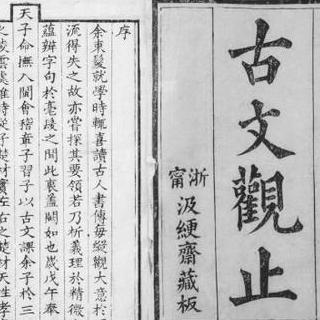 古文觀止
浙甯
汲綆齋藏板
序
余束髮就學時輒喜讀古人書傳每縱觀大意於
流得失之故亦嘗探其要領若乃析義理於精微
蘊辨字句於毫髮之間此衷蓋闕如也歲戊午奉
天子命撫八閩會稽章子習子以古文課余子於三
之凌雲處維時從子楚材實左右之楚材天性孝